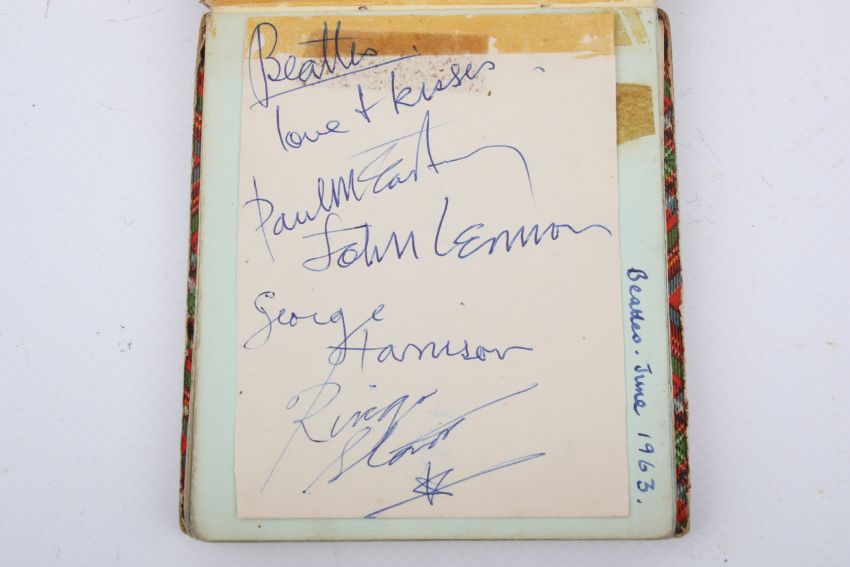 Beatles
love + kisses
Paul McCartney
John Lennon
George
Harrison
Ringo
Starr
Beatles. June 1963.